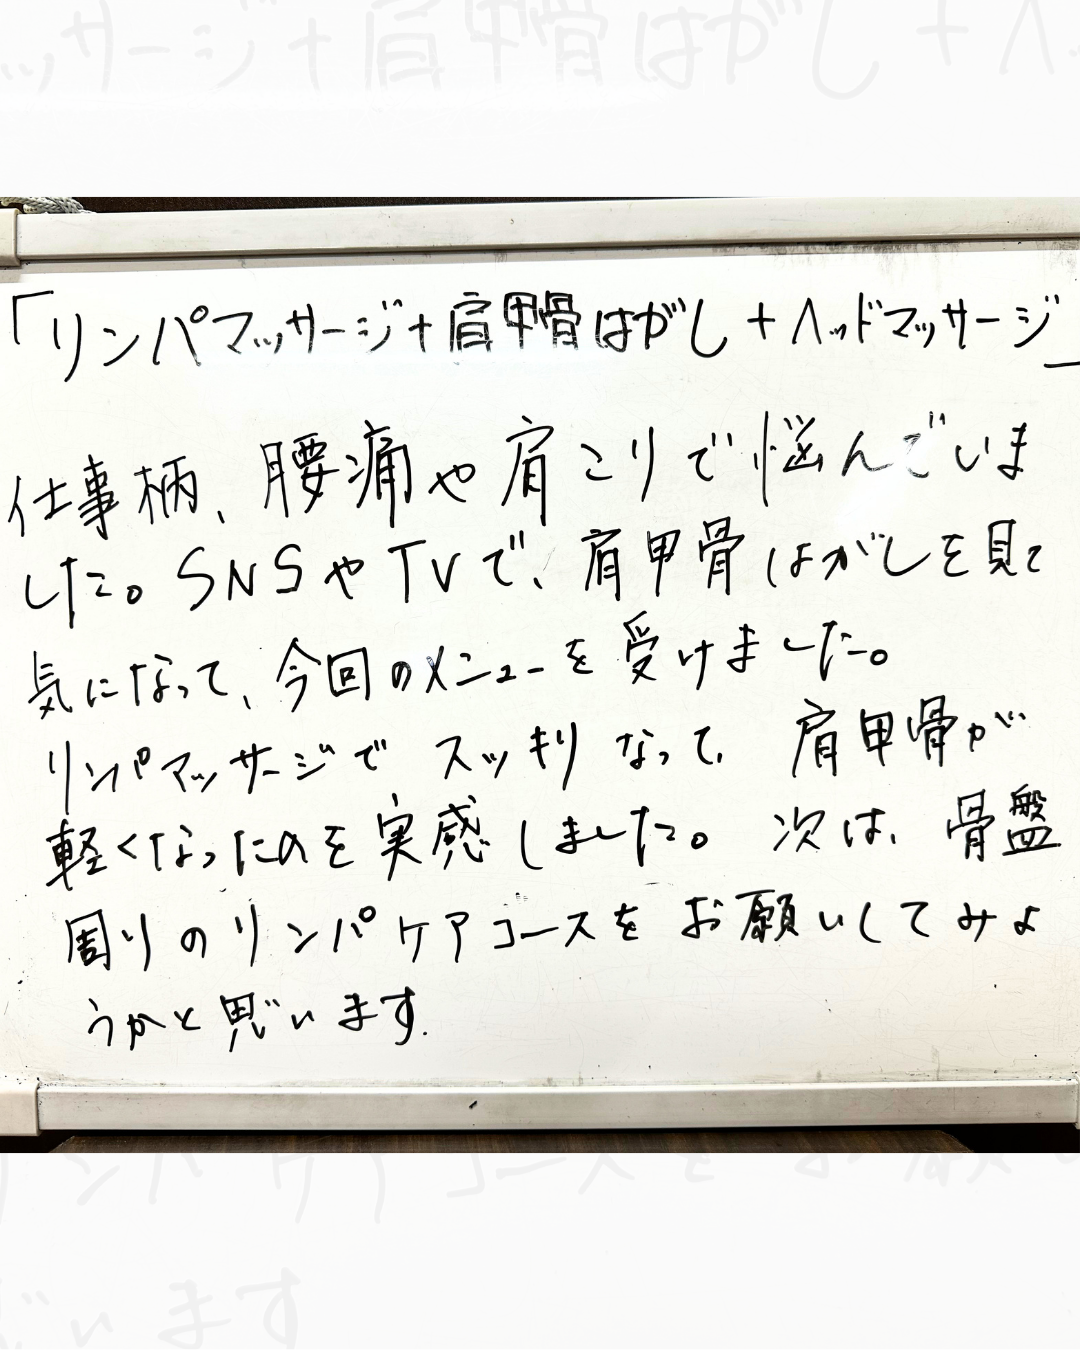 「リンパマッサージ+肩甲骨はがし+ヘッドマッサージ」
仕事柄、腰痛や肩こりで悩んでいま
した。SNSやTVで、肩甲骨はがしを見て
気になって、今回のメニューを受けました。
リンパマッサージでスッキリなって、肩甲骨が
軽くなったのを実感しました。次は、骨盤
周りのリンパケアコースをお願いしてみよ
うかと思います。